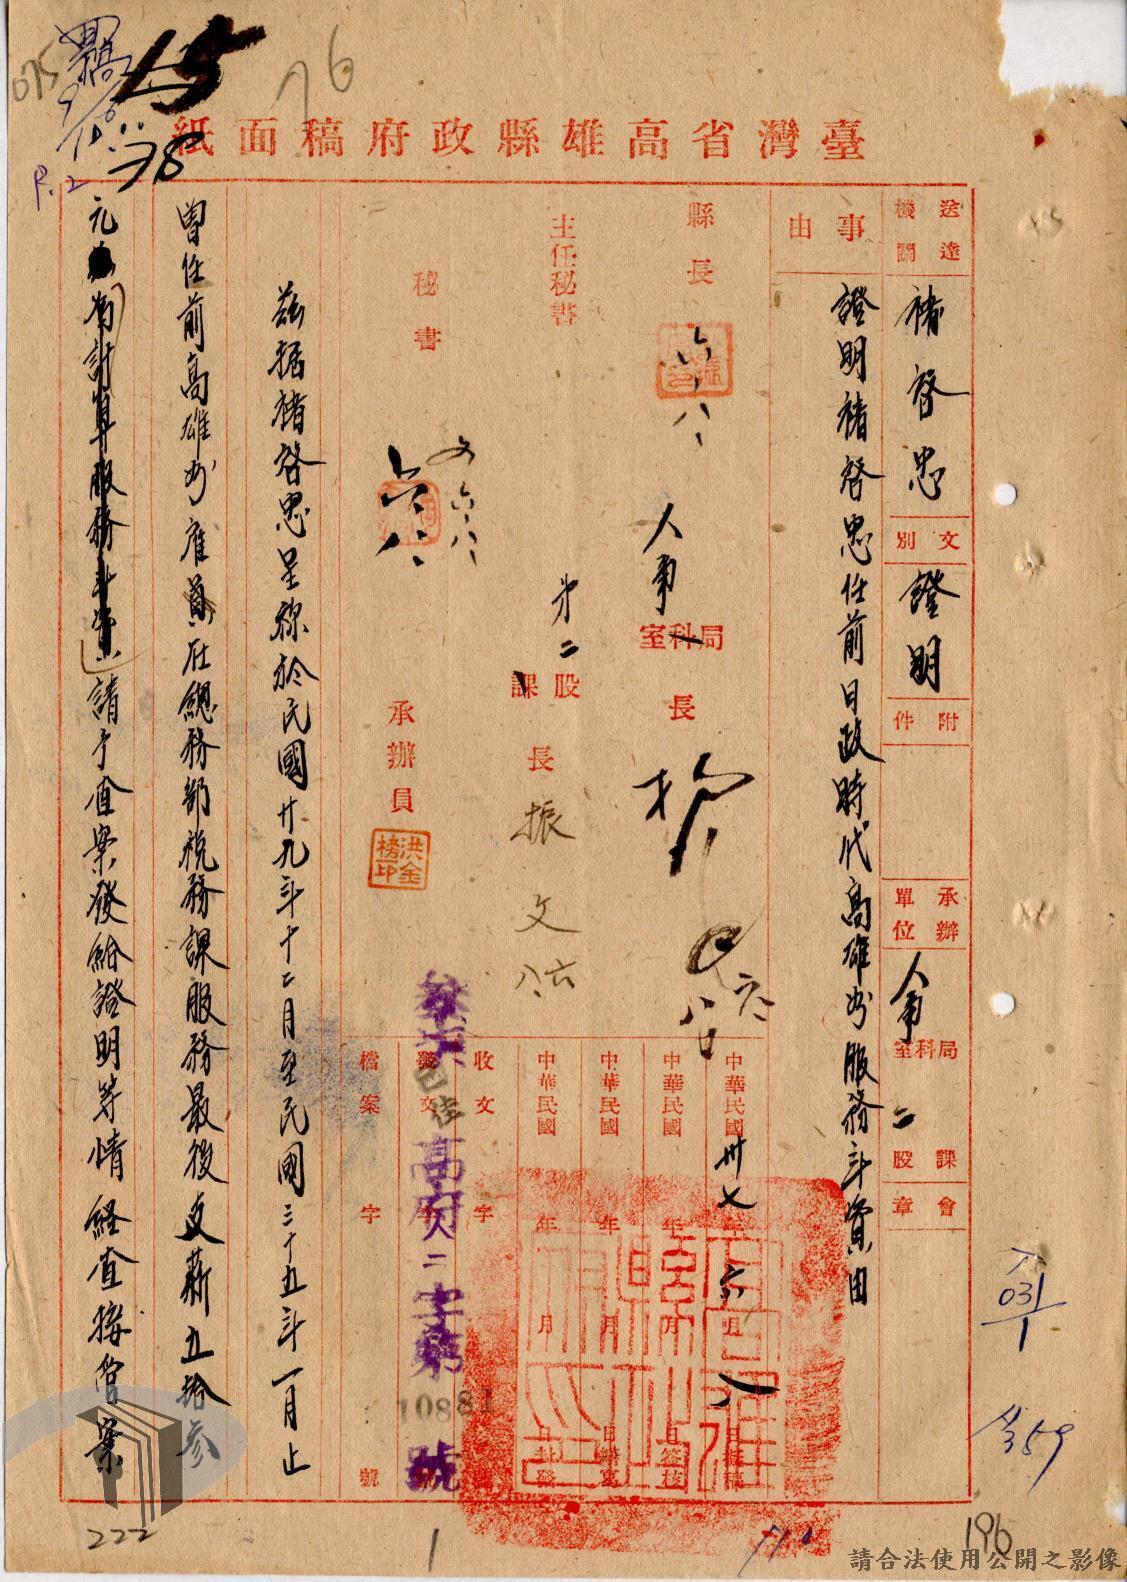 臺灣省高雄縣政府稿面紙
送達機關
褚啓忠
文別
證明
附件
承辦單位
人事
局科室
二
課股
會章
事由
證明褚啓忠任前日政時代高雄州服務年資由
縣長
六、八、
人事
局科室長
六、
八日
主任秘書
第二
股課長
振文
六、八、
秘書
文六、八、
六、八、
承辦員
洪金
榜印
中華民國卅七年六月八日擬稿
中華民國年月日簽核
中華民國年月日繕寫
中華民國年月日封發
收文字第號
發文
高府人二字第10881號
檔案字號
茲据褚啓忠呈称於民國廿九年十二月至民國三十五年一月止
曾任前高雄州雇員在總務部税務課服務最後支薪五拾參
元為計算服務年資請予查案發給證明等情経查接管案
15
76
075
9/6
P.2
78
031
1
196
222
1
請合法使用公開之影像